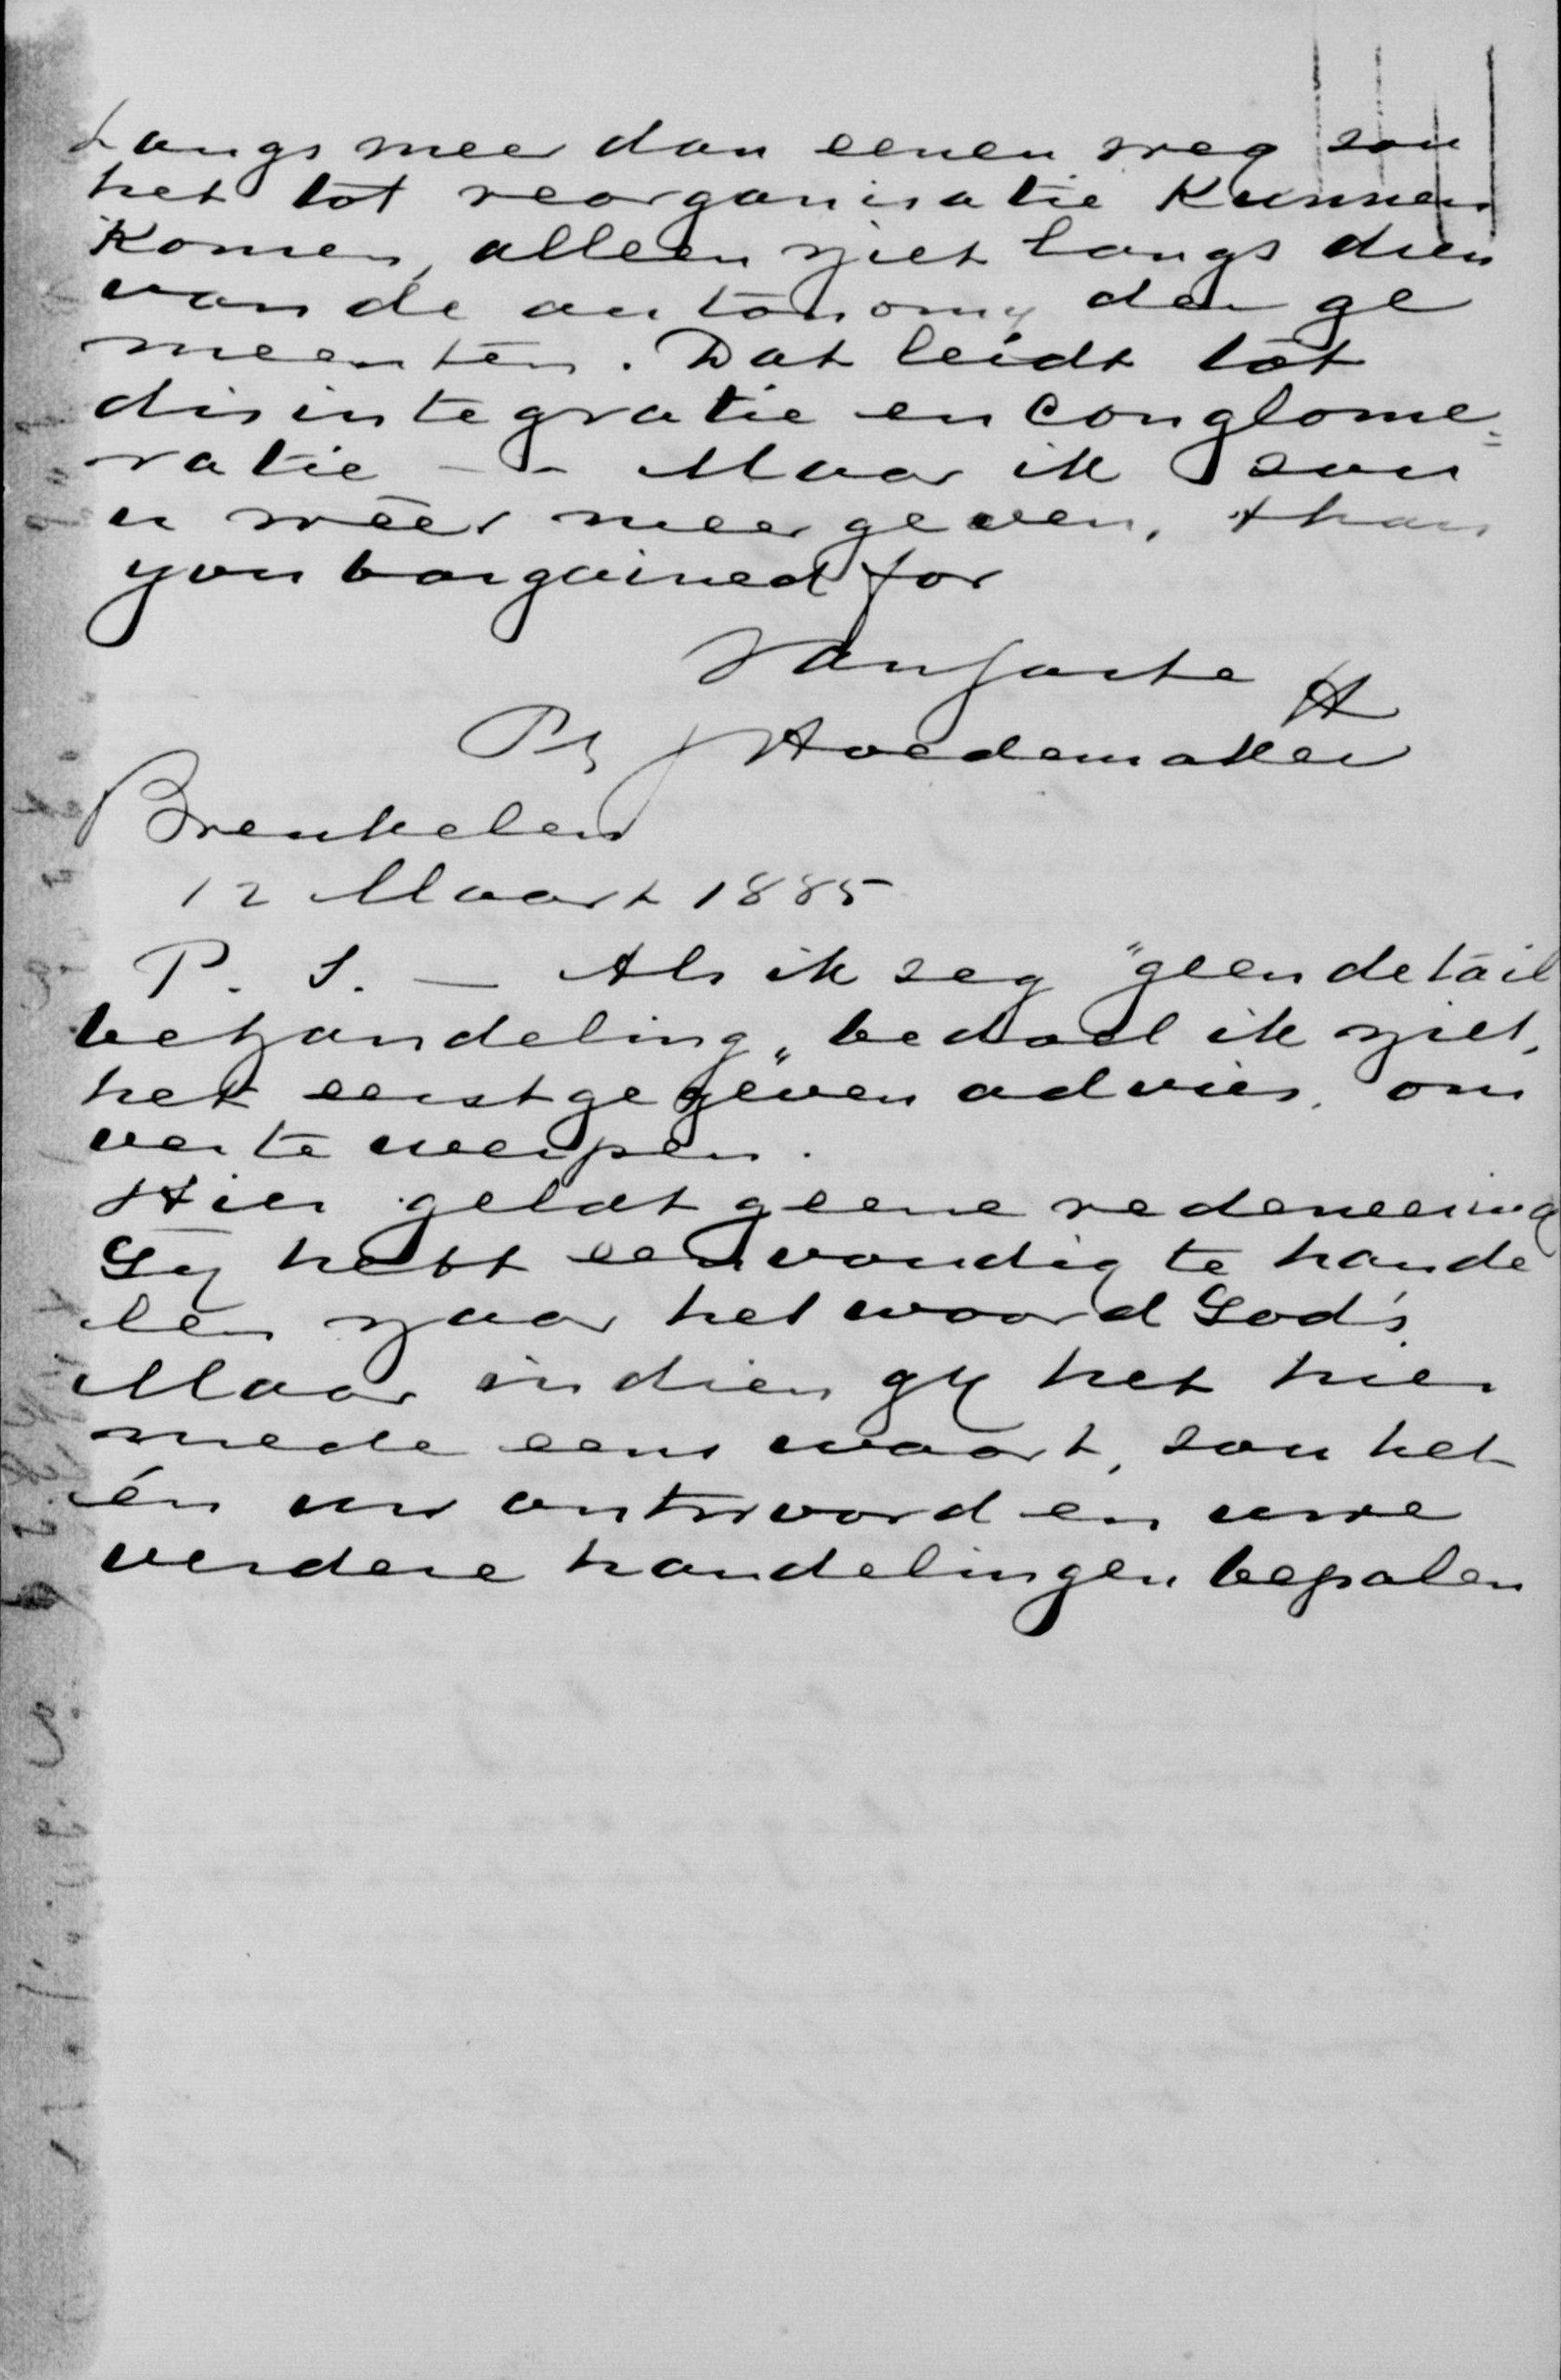 Langs meer dan eenen weg zou
het tot reorganisatie Kunnen
Komen, alleen niet langs dien
van de autonomy der ge
meenten. Dat leidt tot
disintegratie en conglome=
ratie - - Maar ik zou
u wéér meer geven, than
you bargained for
Hoedemaker
Breukelen
12 Maart 1885
P. S. — Als ik zeg "geen detail
behandeling„ bedoel ik niet,
het eerst gegeven advies, om
ver te werpen.
Hier geldt geene redeneering
Gy hebt eenvoudig te hande
len naar het woord God's.
Maar indien gy het hier
mede eens waart, zou het
én uw antwoord en uwe
verdere handelingen bepalen